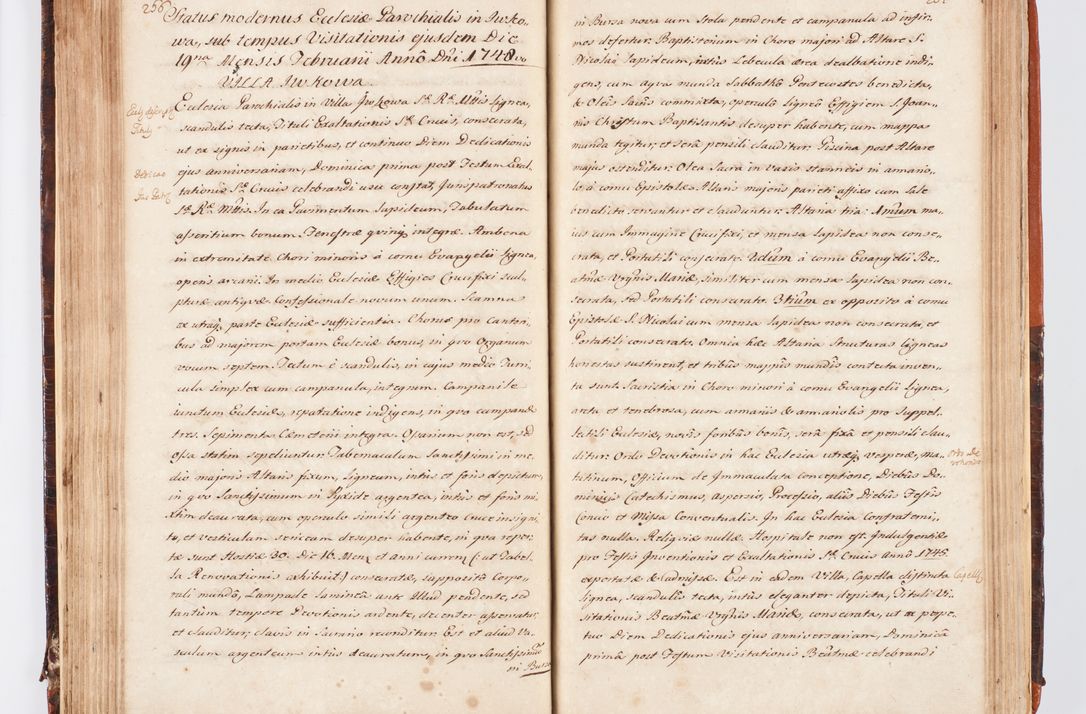 256
Status modernus Ecclesiæ Parochialis in Iwko,,
wa, sub tempus Visitationis ejusdem Die
19na Mensis Februarii Annô Dñi 1748vo
VILLA Iwkowa
Ecclesia Parochialis in Villa Iwkowa Sæ. Ræ. Mttis Lignea,
scandulis tecta, Tituli Exaltationis Sæ Crucis, consecrata,
Tituly
ut ex signis in parietibus, et continuo Diem Dedicationis
ejus anniversariam, Dominica prima post Festum Exal,,
Dedicao
tationis Sæ Crucis celebrandi usu constat, Jurispatronatus
Jus Patr
Sæ. Ræ. Mttis. In ea Pavimentum Lapideum, Tabulatum
asseritium bonum. Fenestræ qvinq integræ. Ambona
in extremitate Chori minoris à cornu Evangelii Lignea,
operis arcarii. In medio Ecclesiæ Effigies Crucifixi scul,,
pturæ antiqvæ. Confessionale novum unum. Scamna
ex utraq parte Ecclesiæ sufficientia. Chorus pro Cantori,,
bus ad majorem portam Ecclesiæ bonus, in qvo Organum
vocum septem. Tectum è scandulis, in cujus medio Turri,,
cula simplex cum campanula, integrum. Campanile
iunctum Ecclesiæ, reparatione indigens, in qvo campanæ
tres. Sepimenta Cæmeterii integra. Ossarium non est, sed
Ossa statim sepeliuntur. Tabernaculum Sanctissimi in me,,
dio majoris Altaris fixum, Ligneum, intùs et foris depictum,
in qvo Sanctissimum in Pyxide argentea, intùs et foris ni,,
xtim deaurata, cum operculo simili argenteo Cruce insigni,,
to, et vestitulum sericeum desuper habente, in qva reper,,
tæ sunt Hostiæ 30. Die 16. Mens et anni currn (ut Tabel,,
la Renovationis exhibuit) consecratæ, supposito Corpo,,
rali mundô, Lampade laminea ante Illud pendente, sed
tantùm tempore Devotionis ardente, decenter asservatur,
et clauditur, clavis in Sacrario reconditur. Est et aliud Va,,
sculum argenteum intùs deauratum, in qvo Sanctissimũ
in Bursa
in Bursa nova cum Stola pendente et campanula ad infir,,
mos defertur. Baptisterium in Choro majori ad Altare S.
Nicolai Lapideum, intùs Lebecula ærea dealbatione indi,,
gens, cum aqva munda Sabbathô Pentecostes benedicta,
& Oleis Sacris commixta, operculô ligneô Effigiem S. Joan,,
nis Christum Baptisantis desuper habente, cum mappa
munda tegitur, et serâ pensili clauditur. Piscina post Altare
majus ostenditur. Olea Sacra in vasis stanneis in armario,,
lo, à cornu Epistolæ Altaris majoris parieti affixo cum Sale
benedicto servantur et clauduntur. Altaria tria: 1mum ma,,
jus cum Immagine Crucifixi, et mensa Lapidea non conse,,
crata, et Portatili consecrato. 2dum à cornu Evangelii Be,,
atmæ Vrgnis Mariæ, similiter cum mensa Lapidea non con,,
secrata, sed Portatili consecrato. 3tium ex opposito à cornu
Epistolæ S. Nicolai cum mensa lapidea non consecrata, et
Portatili consecrato. Omnia hæc Altaria Structuras Ligneas
honestas sustinent, et tribùs mappis mundis contecta inven,,
ta sunt. Sacristia in Choro minori à cornu Evangelii Lignea,
arcta et tenebrosa, cum armariis & armariolis pro Suppel,,
lectili Ecclesiæ, novis foribùs bonis, serâ fixâ et pensili clau,,
ditur. Ordo Devotionis in hac Ecclesia utræq vesperæ, Ma,,
tutinum, Officium de Immaculata Conceptione, Diebùs Do,,
minicis Catechismus, Aspersio, Processio, aliis Diebùs Festis
Concio et Missa Conventualis. In hac Ecclesia Confraterni,,
tas nulla. Religviæ nullæ. Hospitale non est. Indulgentiæ
pro Festis Inventionis et Exaltationis Sæ Crucis Annô 1745.
exportatæ & admissæ. Est in eadem Villa, Capella distincta
Capella
lignea, scandulis tecta, intùs eleganter depicta, Tituli Vi,,
sitationis Beatmæ Vrgnis Mariæ, consecrata, ut ex perpe,,
tuo Diem Dedicationis ejus anniversariam, Dominicâ
primâ post Festum Visitationis Beatmæ celebrandi